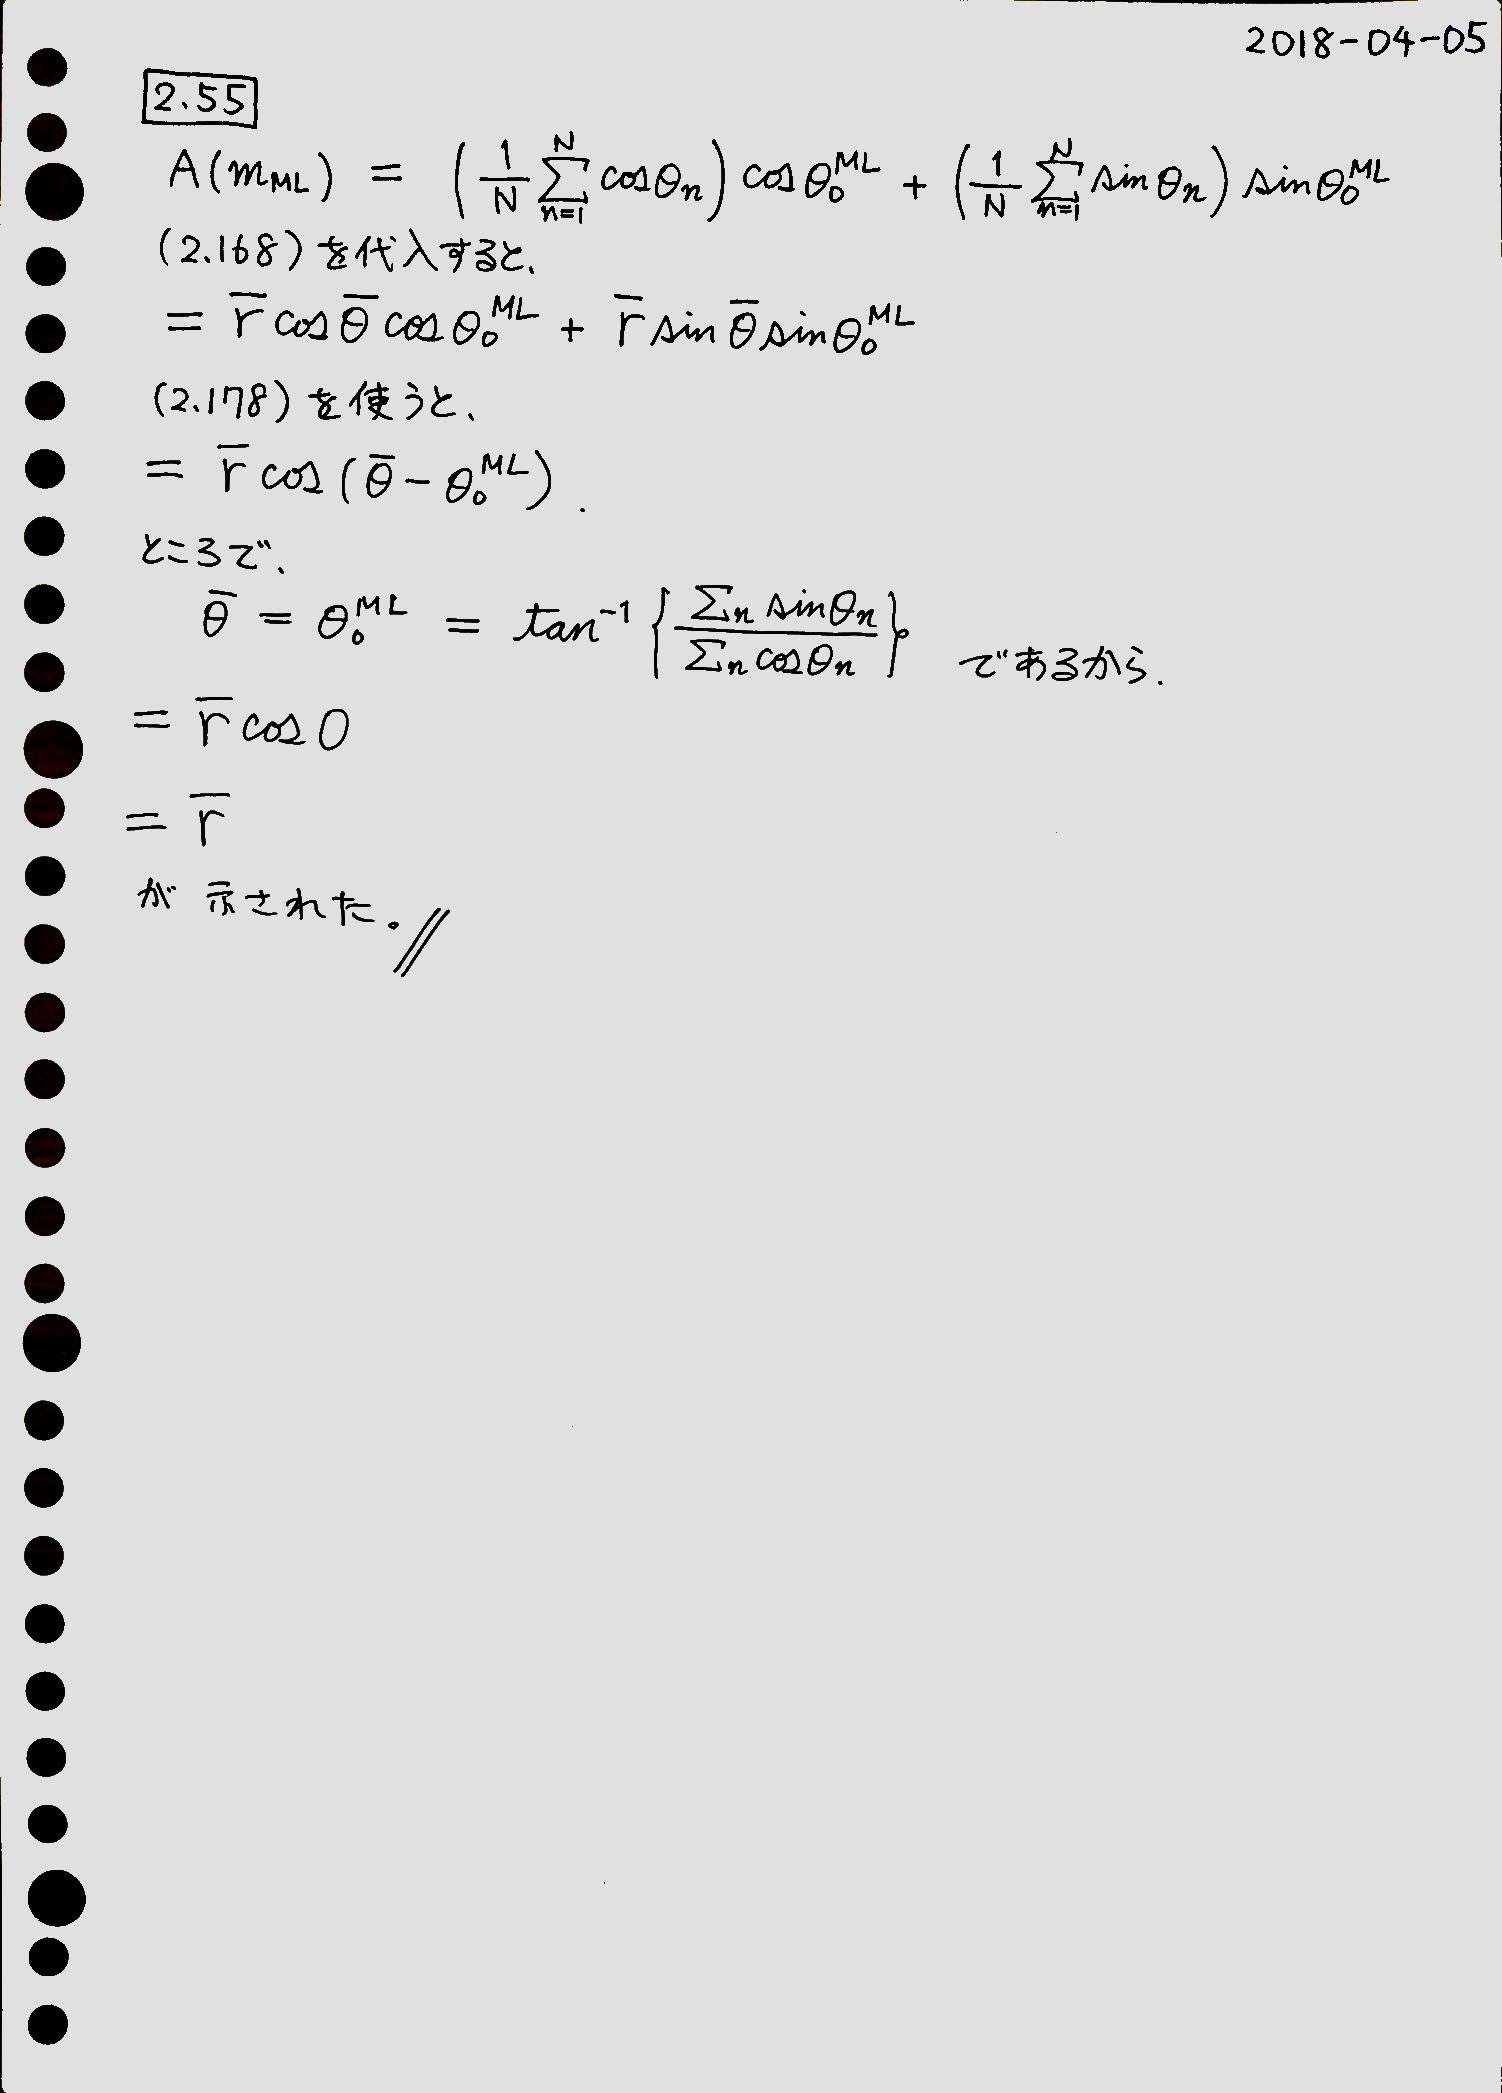 2018-04-05
2.55
A(m_ML) = (1/N Σ_{n=1}^{N} cosθ_n) cosθ_0^{ML} + (1/N Σ_{n=1}^{N} sinθ_n) sinθ_0^{ML}
(2.168)を代入すると、
= r̄ cos θ̄ cos θ_0^{ML} + r̄ sin θ̄ sin θ_0^{ML}
(2.178)を使うと、
= r̄ cos(θ̄ - θ_0^{ML}).
ところで、
θ̄ = θ_0^{ML} = tan^{-1} { Σ_n sinθ_n / Σ_n cosθ_n } であるから.
= r̄ cos 0
= r̄
が示された。//